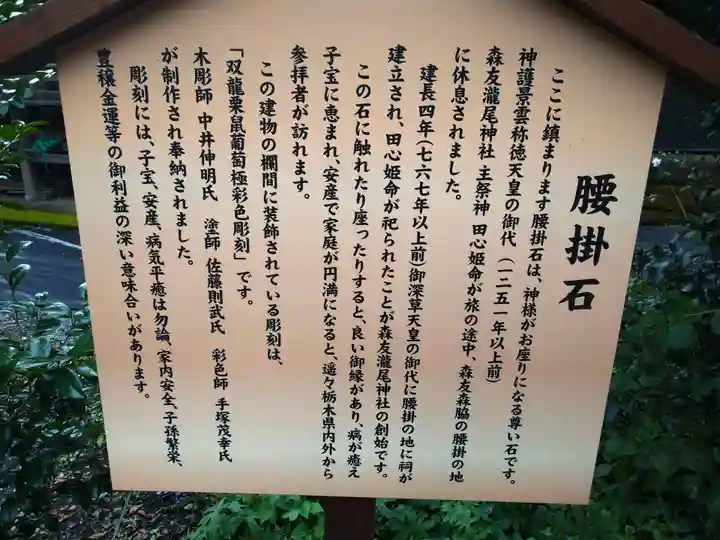 腰掛石
ここに鎮まります腰掛石は、神様がお座りになる尊い石です。
神護景雲称徳天皇の御代 (一二五一年以上前)
森友瀧尾神社 主祭神 田心姫命が旅の途中、森友森脇の腰掛の地
に休息されました。
建長四年(七六七年以上前)御深草天皇の御代に腰掛の地に祠が
建立され、田心姫命が祀られたことが森友瀧尾神社の創始です。
この石に触れたり座ったりすると、良い御縁があり、病が癒え
子宝に恵まれ、安産で家庭が円満になると、遥々栃木県内外から
参拝者が訪れます。
この建物の欄間に装飾されている彫刻は、
「双龍栗鼠葡萄極彩色彫刻」です。
木彫師 中井伸明氏 塗師 佐藤則武氏 彩色師 手塚茂幸氏
が制作され奉納されました。
彫刻には、子宝、安産、病気平癒は勿論、家内安全、子孫繁栄、
豊穣金運等の御利益の深い意味合いがあります。